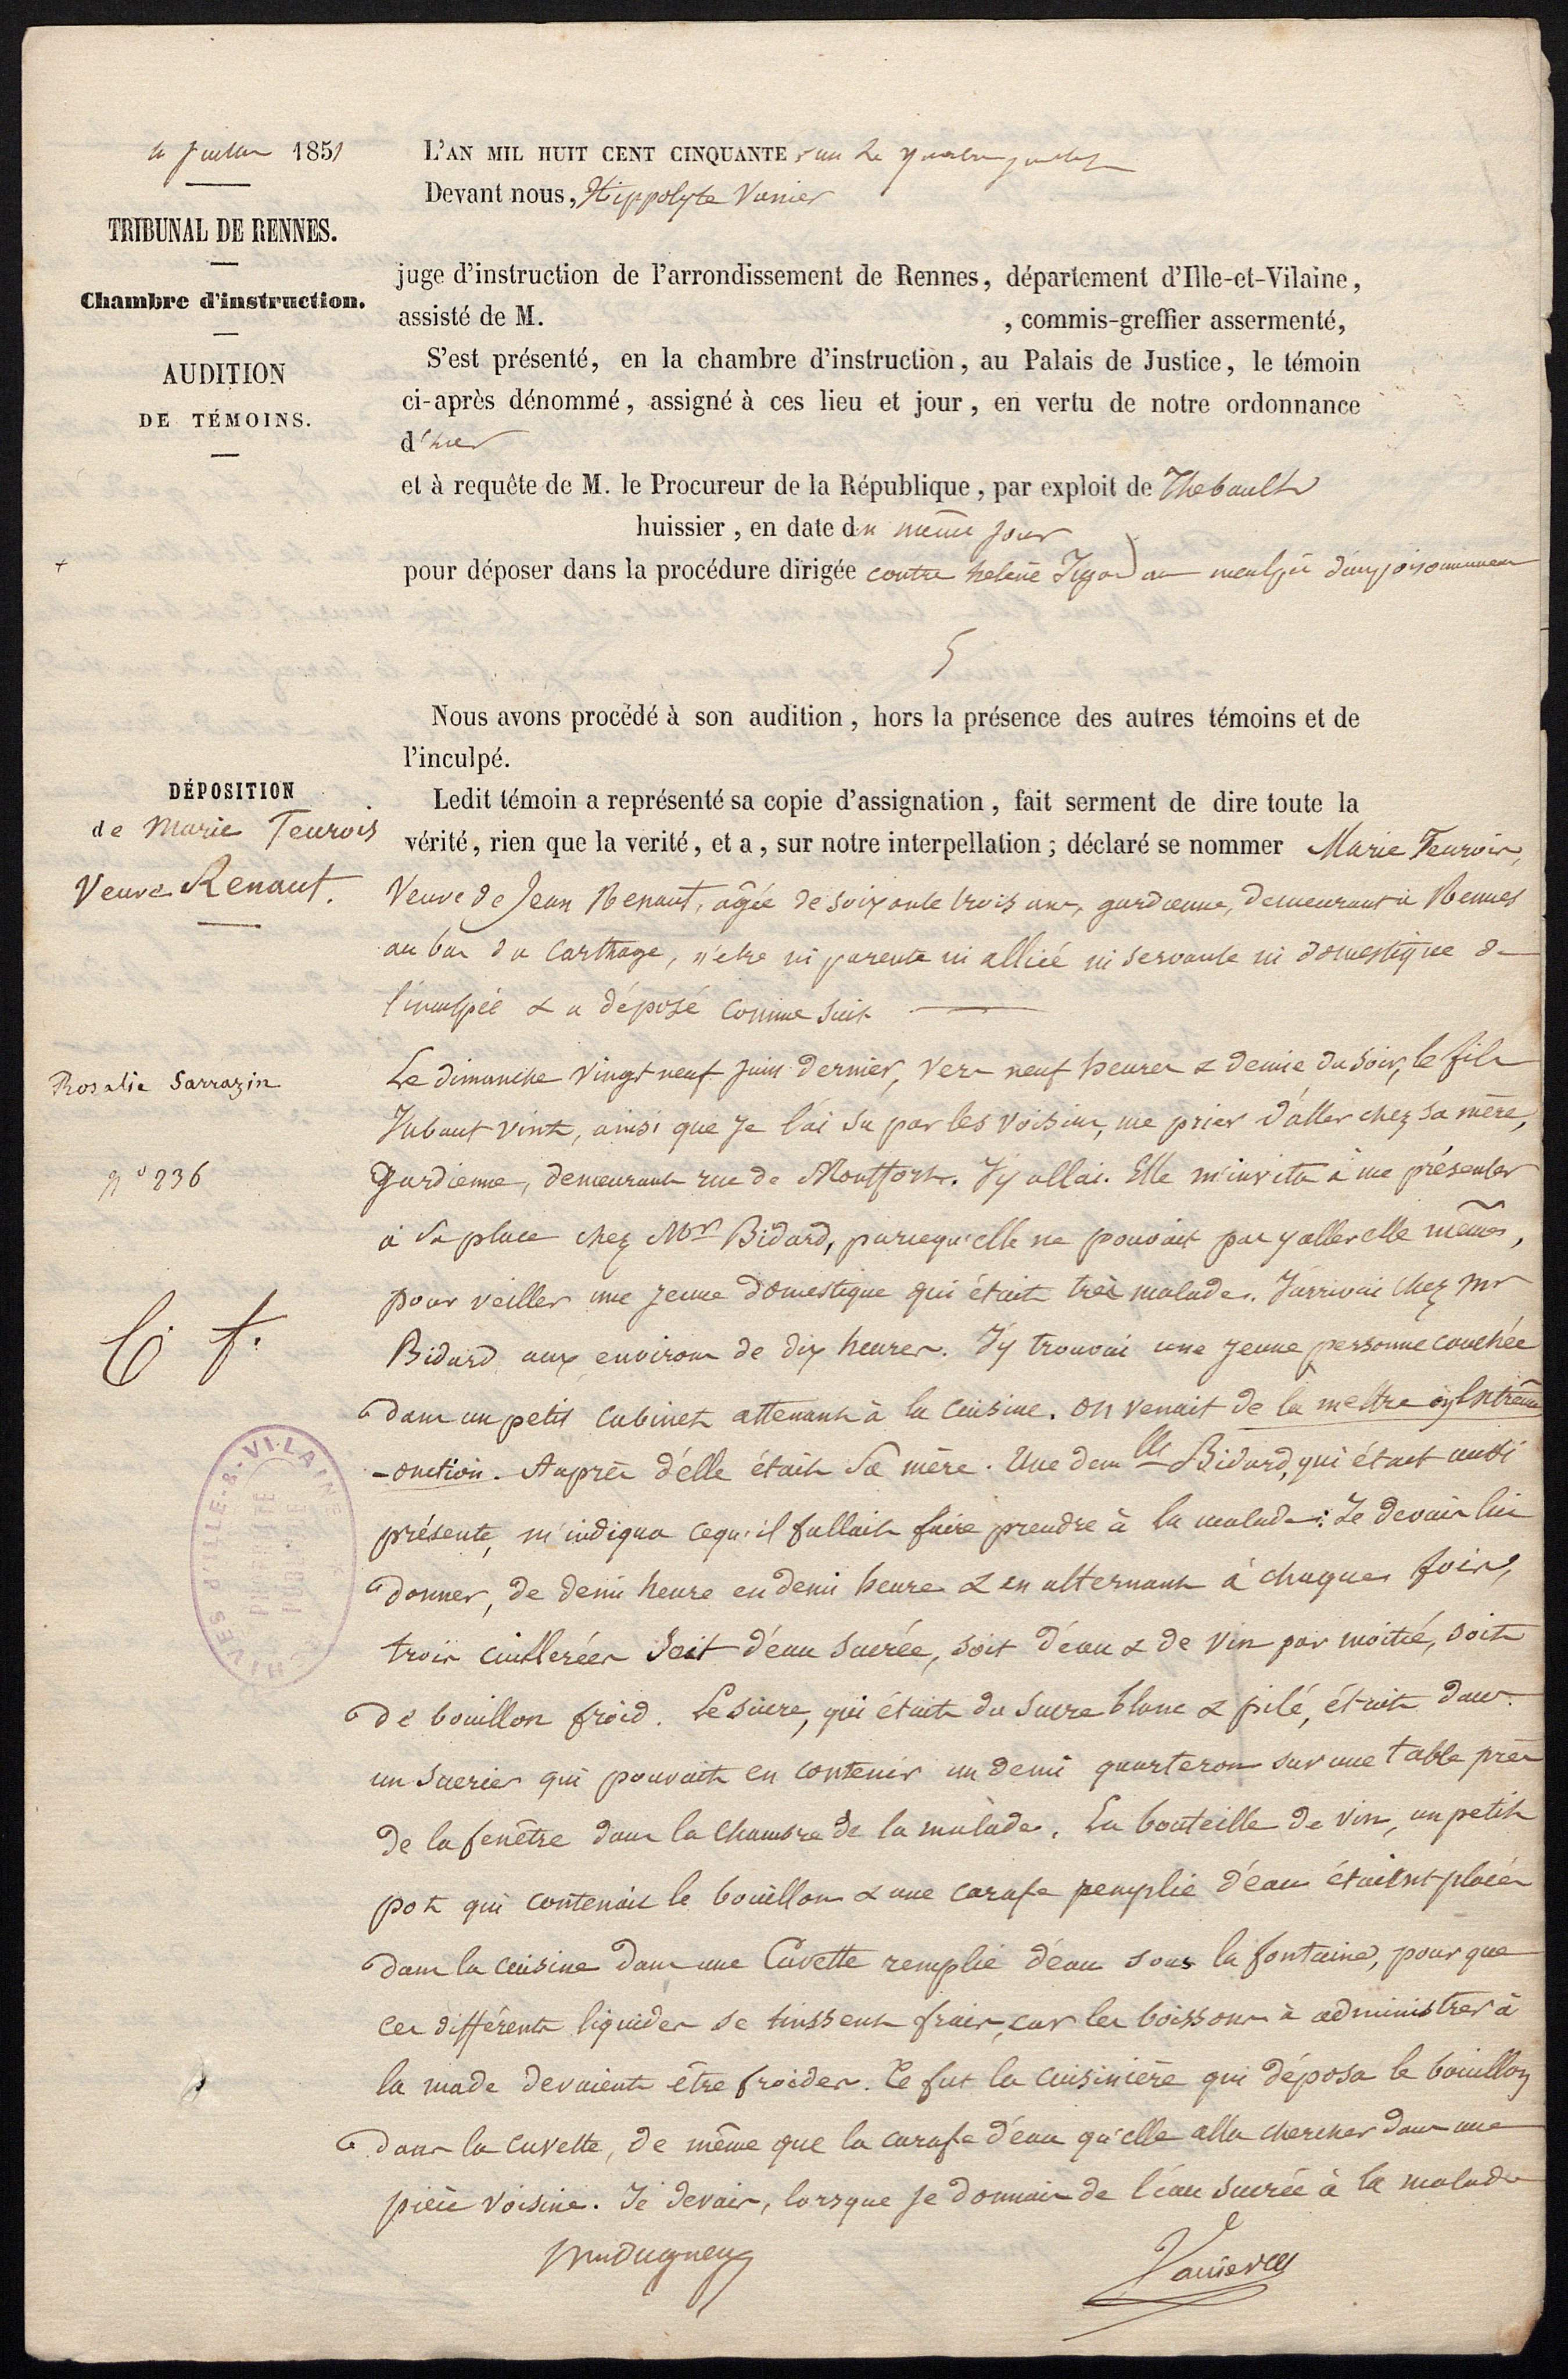 4 Juillet 1851
TRIBUNAL DE RENNES.
Chambre d'instruction.
AUDITION
DE TÉMOINS.
L'AN MIL HUIT CENT CINQUANTE un Le quatre juillet
Devant nous, Hippolyte Vanier
juge d'instruction de l'arrondissement de Rennes, département d'Ille-et-Vilaine,
assisté de M. , commis-greffier assermenté,
S'est présenté, en la chambre d'instruction, au Palais de Justice, le témoin
ci-après dénommé, assigné à ces lieu et jour, en vertu de notre ordonnance
d'hier
et à requête de M. le Procureur de la République, par exploit de Thebault
huissier, en date du même jour
pour déposer dans la procédure dirigée contre helene Jegado inculpée d'empoisonnement
Nous avons procédé à son audition, hors la présence des autres témoins et de
l'inculpé.
DÉPOSITION
de Marie Feurois
Veuve Renaut.
Ledit témoin a représenté sa copie d'assignation, fait serment de dire toute la
vérité, rien que la verité, et a, sur notre interpellation; déclaré se nommer Marie Feurois,
Veuve de Jean Renaut, agée de soixante trois ans, gardienne, demeurant à Rennes
au bas du Carthage, n'etre ni parente ni alliée ni servante ni domestique de
l'inculpée & a déposé comme suit
Rosalie Sarrazin
Le dimanche Vingt neuf Juin dernier, vers neuf heures & demie du soir, le fils
Jubaut vint, ainsi que je l'ai su par les voisins, me prier d'aller chez sa mère,
n° 236
gardienne, demeurant rue de Montfort. J'y allai. Elle m'invita à me présenter
à sa place chez Mr Bidard, parcequ'elle ne pouvait pas y aller elle même,
pour veiller une jeune domestique qui était très malade. J'arrivai chez Mr
Bidard aux environs de dix heures. J'y trouvai une jeune personne couchée
dans un petit cabinet attenant à la cuisine. On venait de la mettre en Extrême
-onction. Auprès d'elle était sa mère. Une dem lle Bidard, qui était aussi
présente, m'indiqua ce qu'il fallait faire prendre à la malade: Je devais lui
donner, de demi heure en demi heure & en alternant à chaque fois,
trois cuillerées soit d'eau sucrée, soit d'eau & de vin par moitié, soit
de bouillon froid. Le sucre, qui était du sucre blanc & pilé, était dans
un sucrier qui pouvait en contenir un demi quarteron sur une table près
de la fenêtre dans la chambre de la malade. La bouteille de vin, un petit
pot qui contenait le bouillon & une carafe remplie d'eau étaient placés
dans la cuisine dans une Cuvette remplie d'eau sous la fontaine, pour que
ces différents liquides se tinssent frais, car les boissons à administrer à
la made devaient être froides. Ce fut la cuisinière qui déposa le bouillon
dans la cuvette, de même que la carafe d'eau qu'elle alla chercher dans une
pièce voisine. Je devais, lorsque je donnais de l'eau sucrée à la malade
Vanier